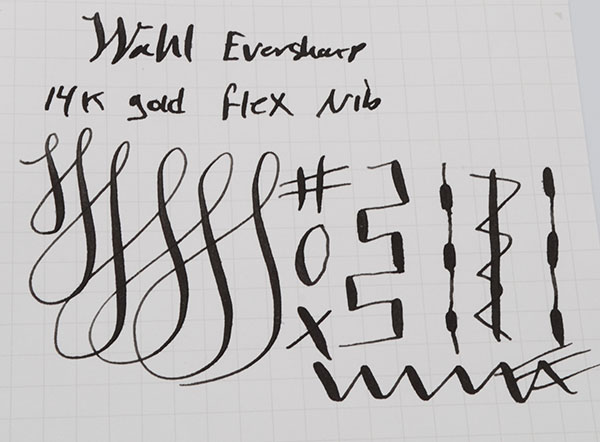 Wahl Eversharp
14K gold flex Nib
#
O
X